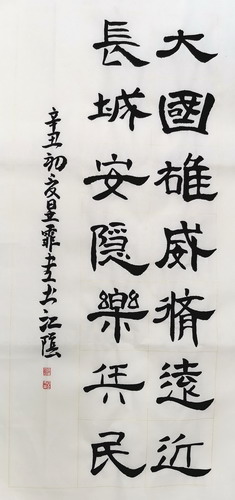 大國雄威脩遠近
長城安隱樂兵民
辛丑初夏星霏书于江陰